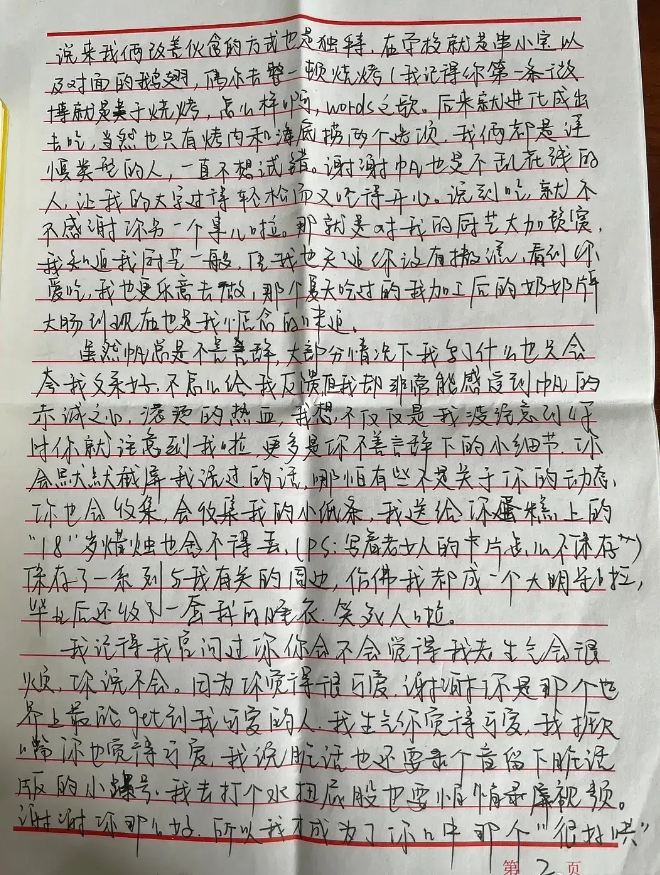 说来我俩改善伙食的方式也是独特，在学校就是串小宝以
及对面的鹅翅，偶尔去整一顿烧烤（我记得你第一条微
博就是关于烧烤，怎么样啊，words之歌。后来就进化成出
去吃，当然也只有烤肉和海底捞两个选项，我俩都是谨
慎类型的人，一直不想试错。谢谢帆也是不乱花钱的
人，让我的大学过得轻松而又吃得开心。说到吃，就不
不感谢你另一个事儿啦。那就是对我的厨艺大加赞赏，
我知道我厨艺一般，但我也知道你没有撒谎，看到你
爱吃，我也更乐意去做，那个夏天吃过的我加工后的奶奶牌
大肠到现在也是我惦念的味道。
虽然帆总是不善言辞，大部分情况下我写了什么也只会
夸我文采好，不怎么给我反馈但我却非常能感受到帆的
赤诚之心，滚烫的热血，我想不仅仅是我没经意到
时你就注意到我啦，更多是你不善言辞下的小细节，你
会默默截屏我说过的话，哪怕有些不是关于你的动态，
你也会收集，会收集我的小纸条，我送给你蛋糕上的
“18”岁蜡烛也舍不得丢，（PS：写着老女人的卡片怎么不保存^^）
保存了一系列与我有关的周边，仿佛我都成一个大明星啦，
毕业后还收了一套我的睡衣，笑死人啦。
我记得我曾问过你你会不会觉得我老生气会很
烦，你说不会。因为你觉得很可爱，谢谢你是那个世
界上最能get到我可爱的人，我生气你觉得可爱，我打呼
噜你也觉得可爱，我说脏话也还要录个音留下脏话
版的小 号，我去打个水扭屁股也要悄悄录屏视频。
谢谢你那么好，所以我才成为了你口中那个“很好哄”
第2页